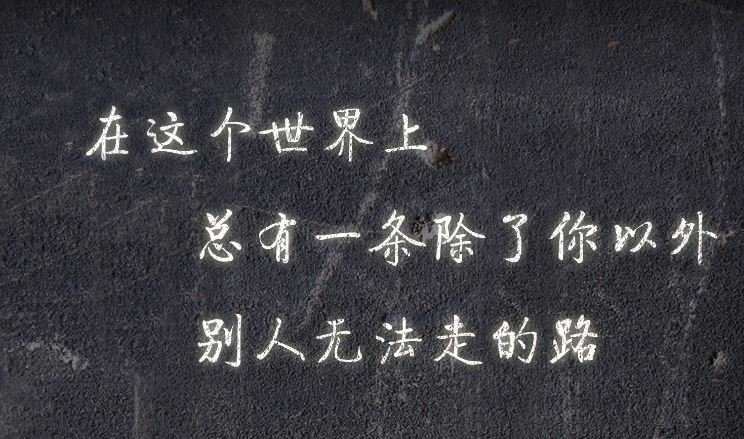 在这个世界上
总有一条除了你以外
别人无法走的路